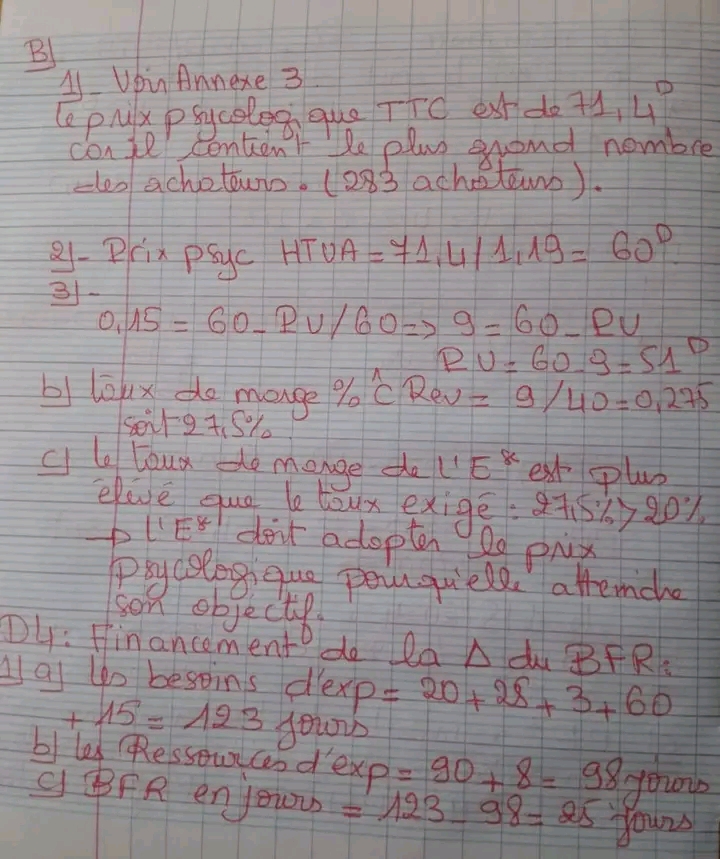 B)
1)_ Voir Annexe 3
Le prix psycologique TTC est de 71,4ᴰ
car il contient le plus grand nombre
des acheteurs. (283 acheteurs).
2)- Prix psyc HTVA = 71,4/1,19 = 60ᴰ
3)-
0,15 = 60_PV/60 => 9 = 60_PV
PV = 60_9 = 51ᴰ
b) Taux de marge % Ĉ Rev = 9/40 = 0,275
soit 27,5%
c) le taux de marge de l'E* est plus
élevé que le taux exigé : 27,5% > 20%
→ l'E* doit adopter le prix
psycologique pour qu'elle atteniche
son objectif.
D4: Financement de la Δ du BFR :
1) a) les besoins d'exp = 20 + 25 + 3 + 60
+ 15 = 123 jours
b) les Ressources d'exp = 90 + 8 = 98 jours
c) BFR en jours = 123 _ 98 = 25 jours